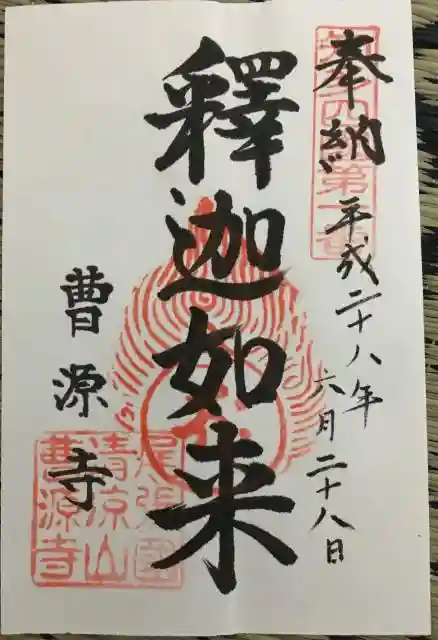 奉納
平成二十八年
六月二十八日
釋迦如来
曹源寺
尾張國
清涼山
曹源寺